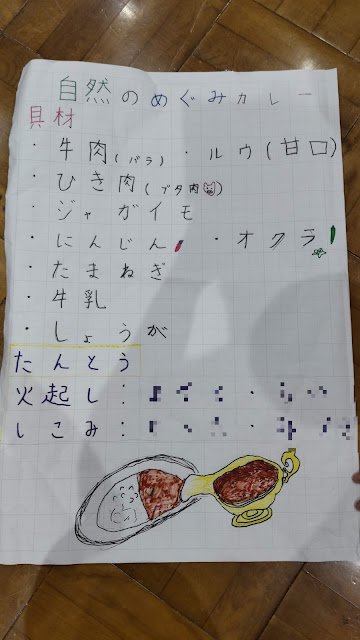 自然のめぐみカレー
具材
・牛肉(バラ) ・ルウ(甘口)
・ひき肉(ブタ肉)
・ジャガイモ
・にんじん ・オクラ
・たまねぎ
・牛乳
・しょうが
たんとう
火起し:
しこみ: